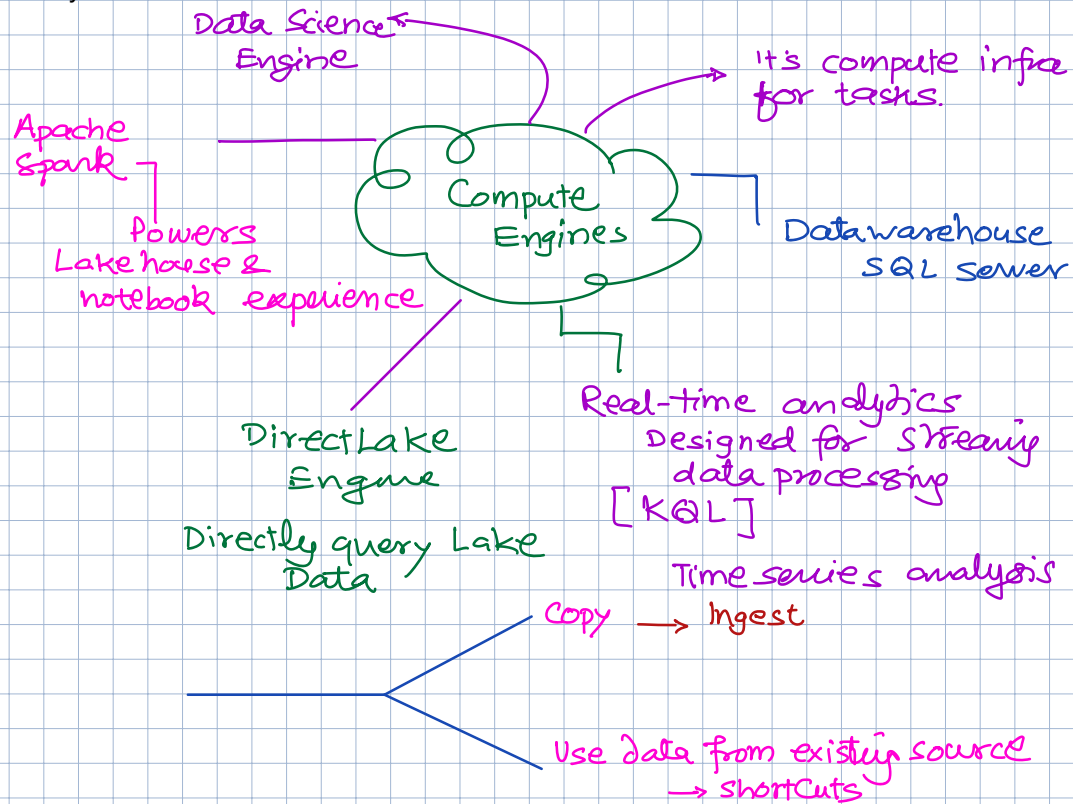 Data Science
Engine
It's compute infra
for tasks.
Apache
Spark
Powers
Lakehouse &
notebook experience
Compute
Engines
Datawarehouse
SQL Server
DirectLake
Engine
Directly query Lake
Data
Real-time analytics
Designed for streaming
data processing
[KQL]
Time series analysis
Copy → Ingest
Use data from existing source
→ shortCuts